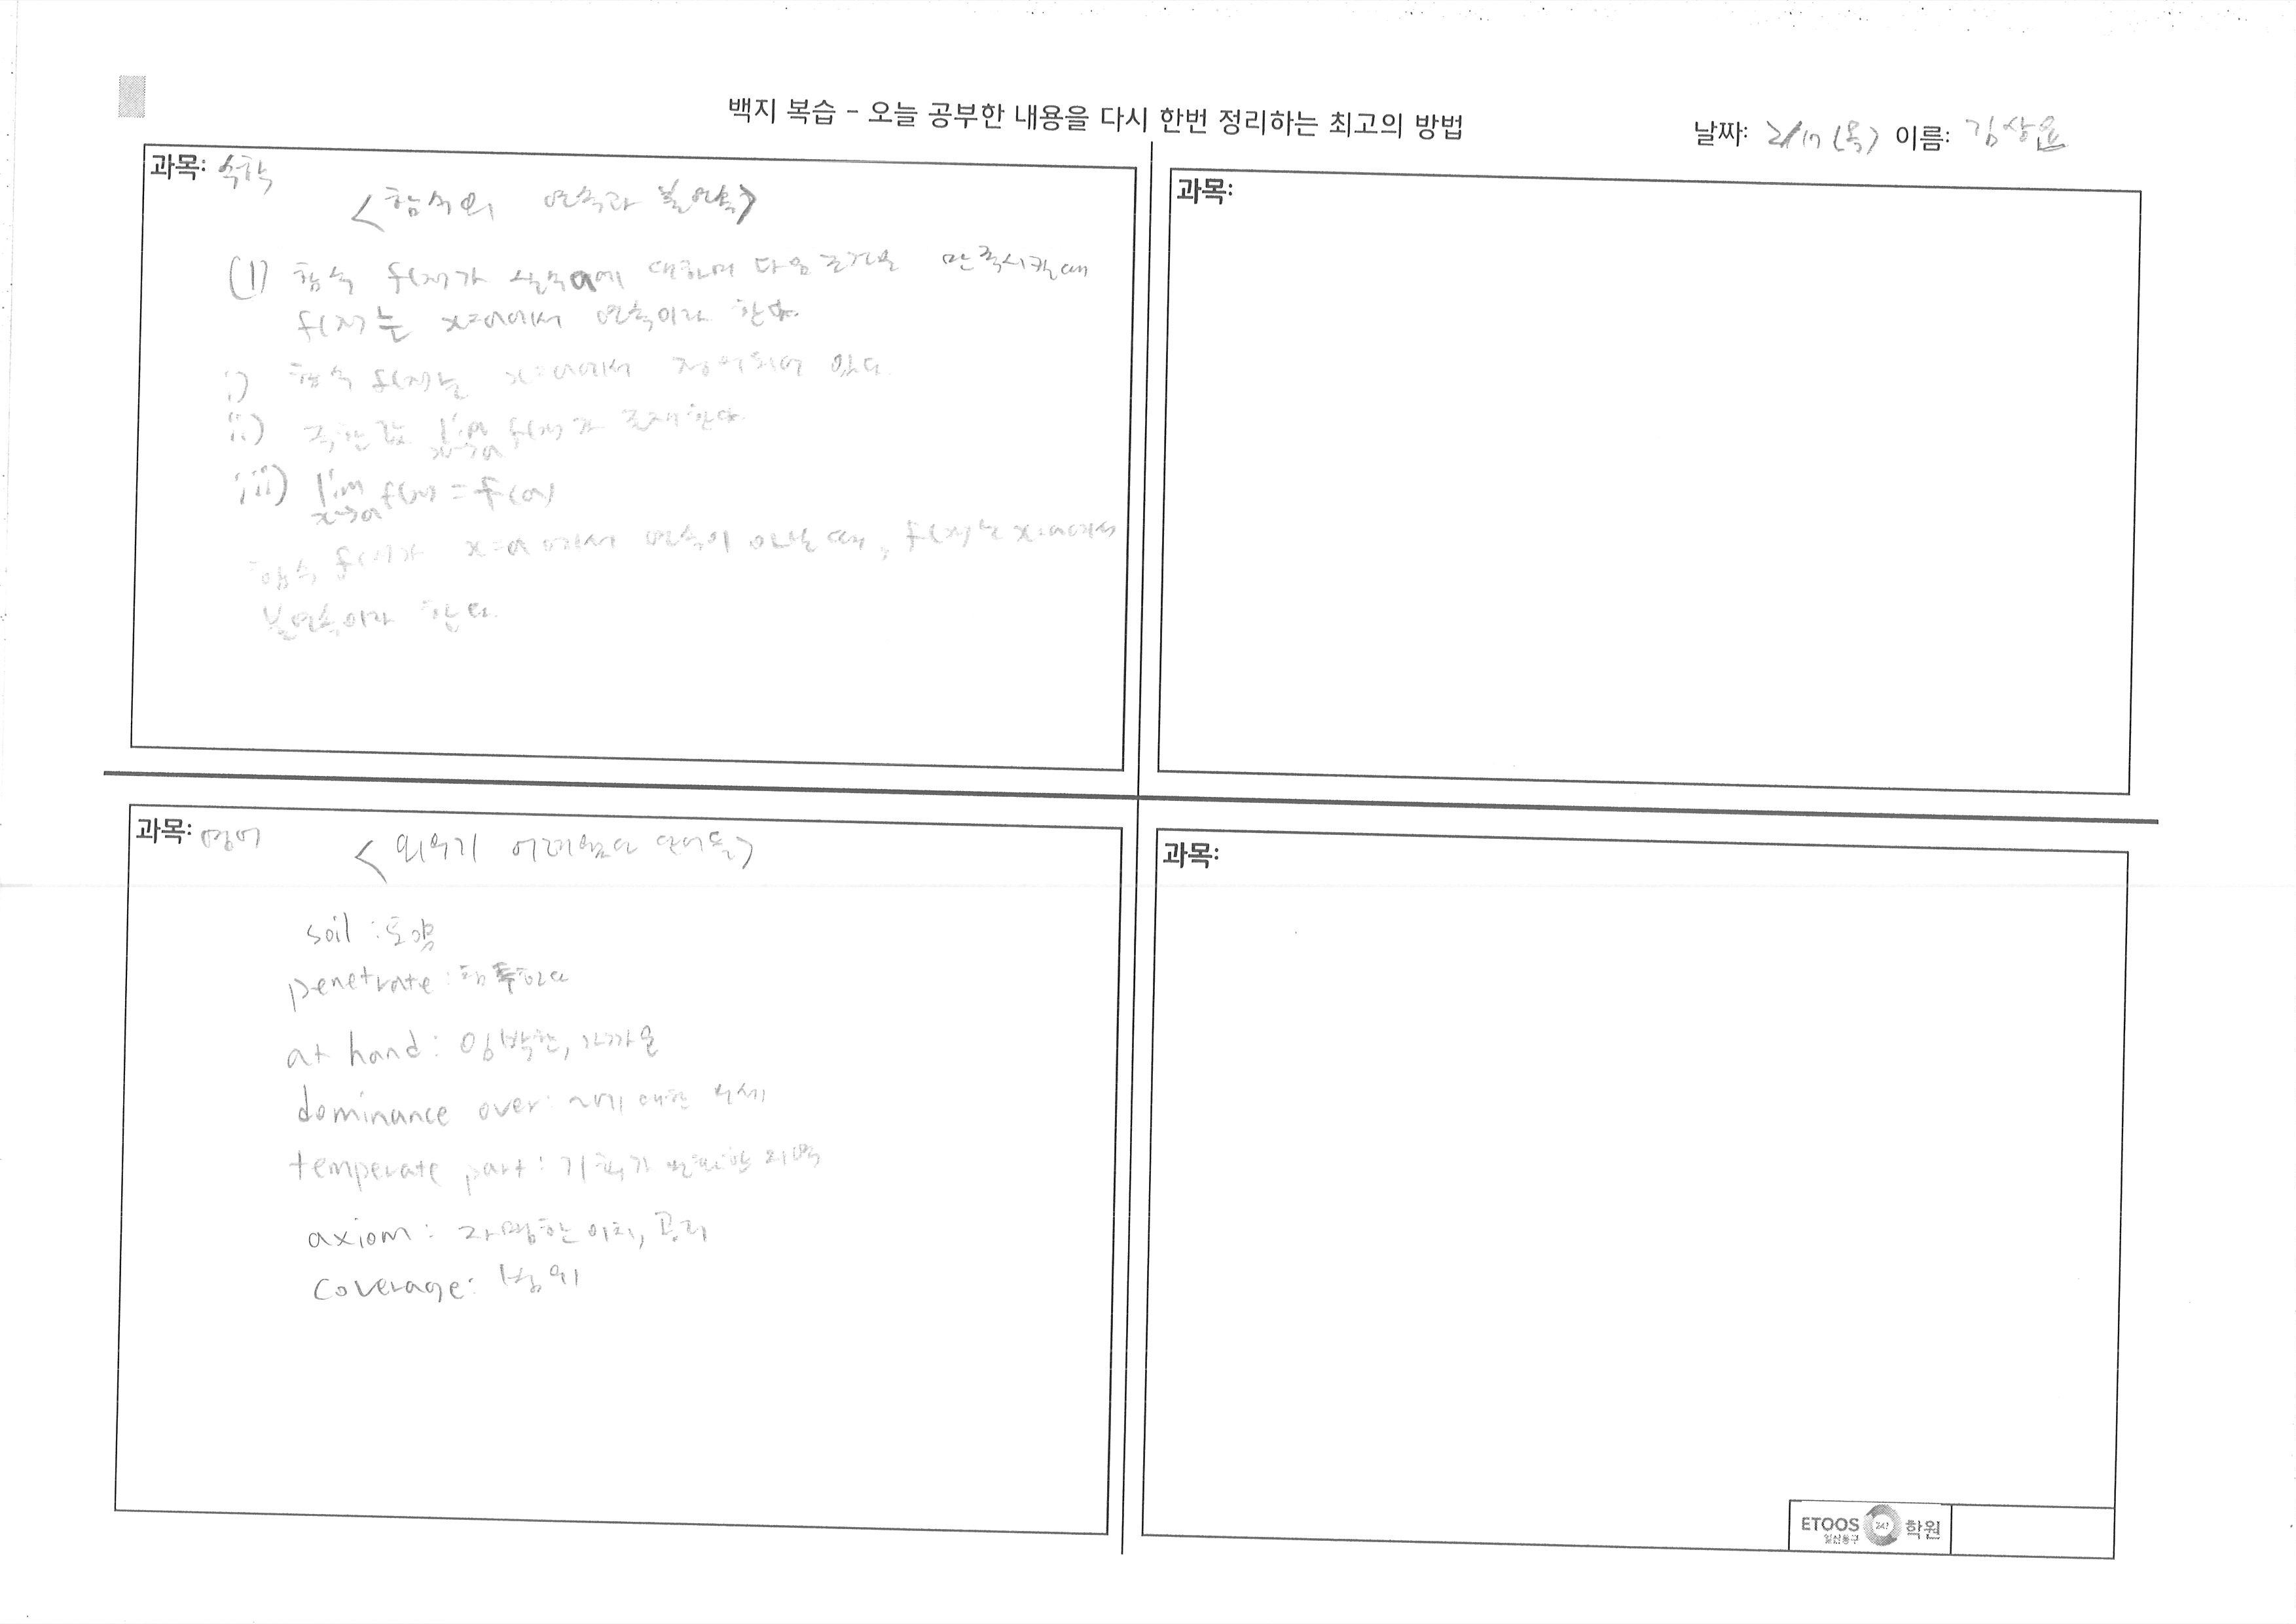 백지 복습 - 오늘 공부한 내용을 다시 한번 정리하는 최고의 방법
날짜: 2/17 (목) 이름: 김상윤
과목: 수학
<함수의 연속과 불연속>
(1) 함수 f(x)가 실수 a에 대하여 다음 조건을 만족시킬 때
f(x)는 x=a에서 연속이라 한다.
i) 함수 f(x)는 x=a에서 정의되어 있다.
ii) 극한값 lim x→a f(x)가 존재한다.
iii) lim x→a f(x) = f(a)
함수 f(x)가 x=a에서 연속이 아닐 때, f(x)는 x=a에서
불연속이라 한다.
과목:
과목: 영어
<외우기 어려웠던 단어들>
soil : 토양
penetrate : 침투하다
at hand : 임박한, 가까운
dominance over : ~에 대한 우세
temperate part : 기후가 온화한 지역
axiom : 자명한 이치, 공리
coverage : 범위
과목:
ETOOS 247 학원
일산동구